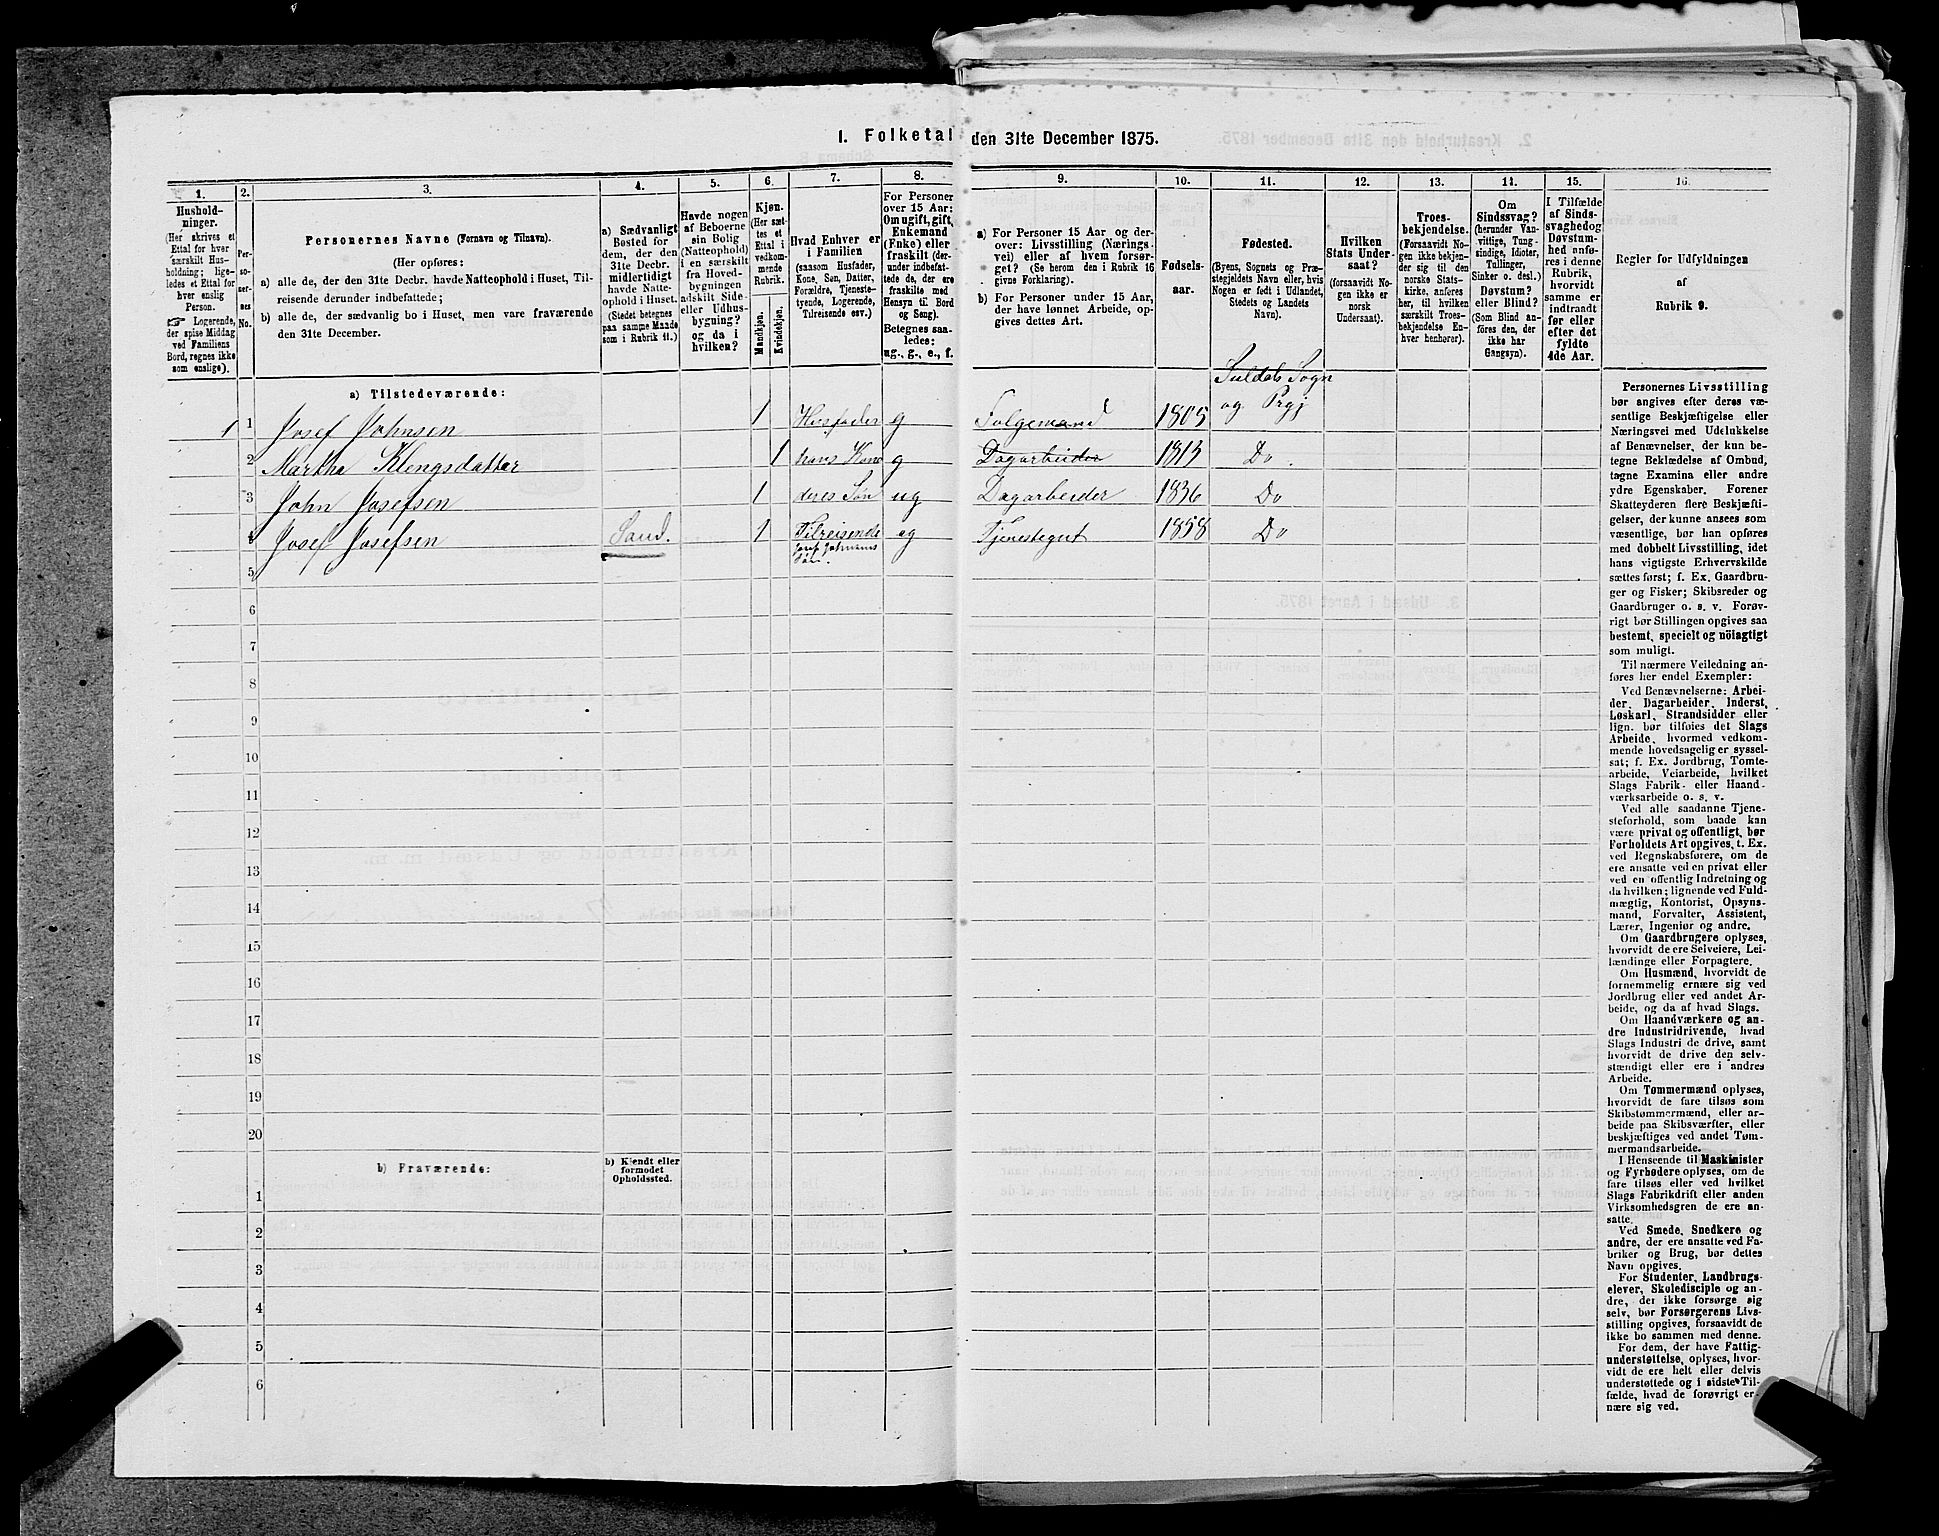 1. Folketal den 31te December 1875.
1. 2. 3. 4. 5. 6. 7. 8. 9. 10. 11. 12. 13. 14. 15. 16.
Hushold-
ninger.
(Her skrives et
Ettal for hver
særskilt Hus-
holdning; lige-
ledes et Ettal for
hver enslig
Person.
☞ Logerende,
der spise Middag
ved Familiens
Bord, regnes ikke
som enslige).
Per-
so-
ner-
nes
No.
Personernes Navne (Fornavn og Tilnavn).
(Her opføres:
a) alle de, der den 31te Decbr. havde Natteophold i Huset, Til-
reisende derunder indbefattede;
b) alle de, der sædvanlig bo i Huset, men vare fraværende
den 31te December.
a) Sædvanligt
Bosted for
dem, der den
31te Decbr.
midlertidigt
havde Natte-
ophold i Huset.
(Stedet betegnes
paa samme Maade
som i Rubrik 11.)
Havde nogen
af Beboerne
sin Bolig
(Natteophold)
i en særskilt
fra Hoved-
bygningen
adskilt Side-
eller Udhus-
bygning?
og da i
hvilken?
Kjøn.
(Her sæt-
tes et
Ettal i
vedkom-
mende
Rubrik.
Mandkjøn.
Kvindekjøn.
Hvad Enhver er
i Familien
(saasom Husfader,
Kone, Søn, Datter,
Forældre, Tjeneste-
tyende, Logerende,
Tilreisende osv.)
For Personer
over 15 Aar:
Om ugift, gift,
Enkemand
(Enke) eller
fraskilt (under
indbefattede de, der ere
fraskilte med
Hensyn til Bord
og Seng).
Betegnes saa-
ledes:
ug., g., e., f.
a) For Personer 15 Aar og der-
over: Livsstilling (Nærings-
vei) eller af hvem forsør-
get? (Se herom den i Rubrik 16
givne Forklaring).
b) For Personer under 15 Aar,
der have lønnet Arbeide, op-
gives dettes Art.
Fødsels-
aar.
Fødested.
(Byens, Sognets og Præ-
stegjeldets Navn eller, hvis
Nogen er født i Udlandet,
Stedets og Landets
Navn).
Hvilken
Stats Under-
saat?
(forsaavidt No-
gen ikke er
norsk
Undersaat).
Troes-
bekjendelse.
(Forsaavidt No-
gen ikke bekjen-
der sig til den
norske Stats-
kirke, anføres
her, til hvilken
særskilt Troes-
bekjendelse En-
hver henhører).
Om
Sindssvag?
(herunder Van-
vittige, Tung-
sindige, Idioter,
Tullinger,
Sinker o. desl.)
Døvstum?
eller Blind?
(Som Blind an-
føres den, der
ikke har
Gangsyn).
I Tilfælde
af Sinds-
svaghed og
Døvstum-
hed anfø-
res i denne
Rubrik,
hvorvidt
samme er
indtraadt
før eller
efter det
fyldte
4de Aar.
Regler for Udfyldningen
af
Rubrik 9.
a) Tilstedeværende:
1 1 Josef Johnsen 1 Husfader g Folgemand 1805 Suldals Sogn og Prgj
2 Martha Klengsdatter 1 hans Kone g Dagarbeider 1813 Do.
3 John Josefsen 1 deres Søn ug Dagarbeider 1836 Do
4 Josef Josefsen Sand. 1 Tilreisende Josef Johnsens Søn. ug Tjenestegut 1858 Do
5
6
7
8
9
10
11
12
13
14
15
16
17
18
19
20
b) Fraværende:
b) Kjendt eller
formodet
Opholdssted.
1
2
3
4
5
6
Personernes Livsstilling
bør angives efter deres væ-
sentlige Beskjæftigelse eller
Næringsvei med Udelukkelse
af Benævnelser, der kun be-
tegne Beklædelse af Ombud,
tagne Examina eller andre
ydre Egenskaber. Forener
Skatteyderen flere Beskjæfti-
gelser, der kunne ansees som
væsentlige, bør han opføres
med dobbelt Livsstilling, idet
hans vigtigste Erhvervskilde
sættes først; f. Ex. Gaardbru-
ger og Fisker; Skibsreder og
Gaardbruger o. s. v. Forøv-
rigt bør Stillingen opgives saa
bestemt, specielt og nöiagtigt
som muligt.
Til nærmere Veiledning an-
føres her endel Exempler:
Ved Benævnelserne: Arbei-
der, Dagarbeider, Inderst,
Løskarl, Strandsidder eller
lign. bør tilføies det Slags
Arbeide, hvormed vedkom-
mende hovedsagelig er syssel-
sat; f. Ex. Jordbrug, Tomte-
arbeide, Veiarbeide, hvilket
Slags Fabrik- eller Haand-
værksarbeide o. s. v.
Ved alle saadanne Tjene-
steforhold, som baade kan
være privat og offentligt, bør
Forholdets Art opgives, t. Ex.
ved Regnskabsførere, om de
ere ansatte ved en privat eller
ved en offentlig Indretning og
da hvilken; lignende ved Fuld-
mægtig, Kontorist, Opsyns-
mand, Forvalter, Assistent,
Lærer, Ingeniør og andre.
Om Gaardbrugere oplyses,
hvorvidt de ere Selveiere, Lei-
lændinge eller Forpagtere.
Om Husmænd, hvorvidt de
fornemmelig ernære sig ved
Jordbrug eller ved andet Ar-
beide, og da af hvad Slags.
Om Haandværkere og an-
dre Industridrivende, hvad
Slags Industri de drive, samt
hvorvidt de drive den selv-
stændigt eller ere i andres
Arbeide.
Om Tømmermænd oplyses,
hvorvidt de fare tilsøs som
Skibstømmermænd, eller ar-
beide paa Skibsværfter, eller
beskjæftiges ved andet Tøm-
mermandsarbeide.
I Henseende til Maskinister
og Fyrbødere oplyses, om de
fare tilsøs eller ved hvilket
Slags Fabrikdrift eller anden
Virksomhedsgren de ere an-
satte.
Ved Smede, Snedkere og
andre, der ere ansatte ved Fa-
briker og Brug, bør dettes
Navn opgives.
For Studenter, Landbrugs-
elever, Skoledisciple og an-
dre, der ikke forsørge sig
selv, bør Forsørgerens Livs-
stilling opgives, forsaavidt de
ikke bo sammen med denne.
For dem, der have Fattig-
understøttelse, oplyses, hvor-
vidt de ere helt eller delvis
understøttede og i sidste Til-
fælde, hvad de forøvrigt er-
nære sig ved.